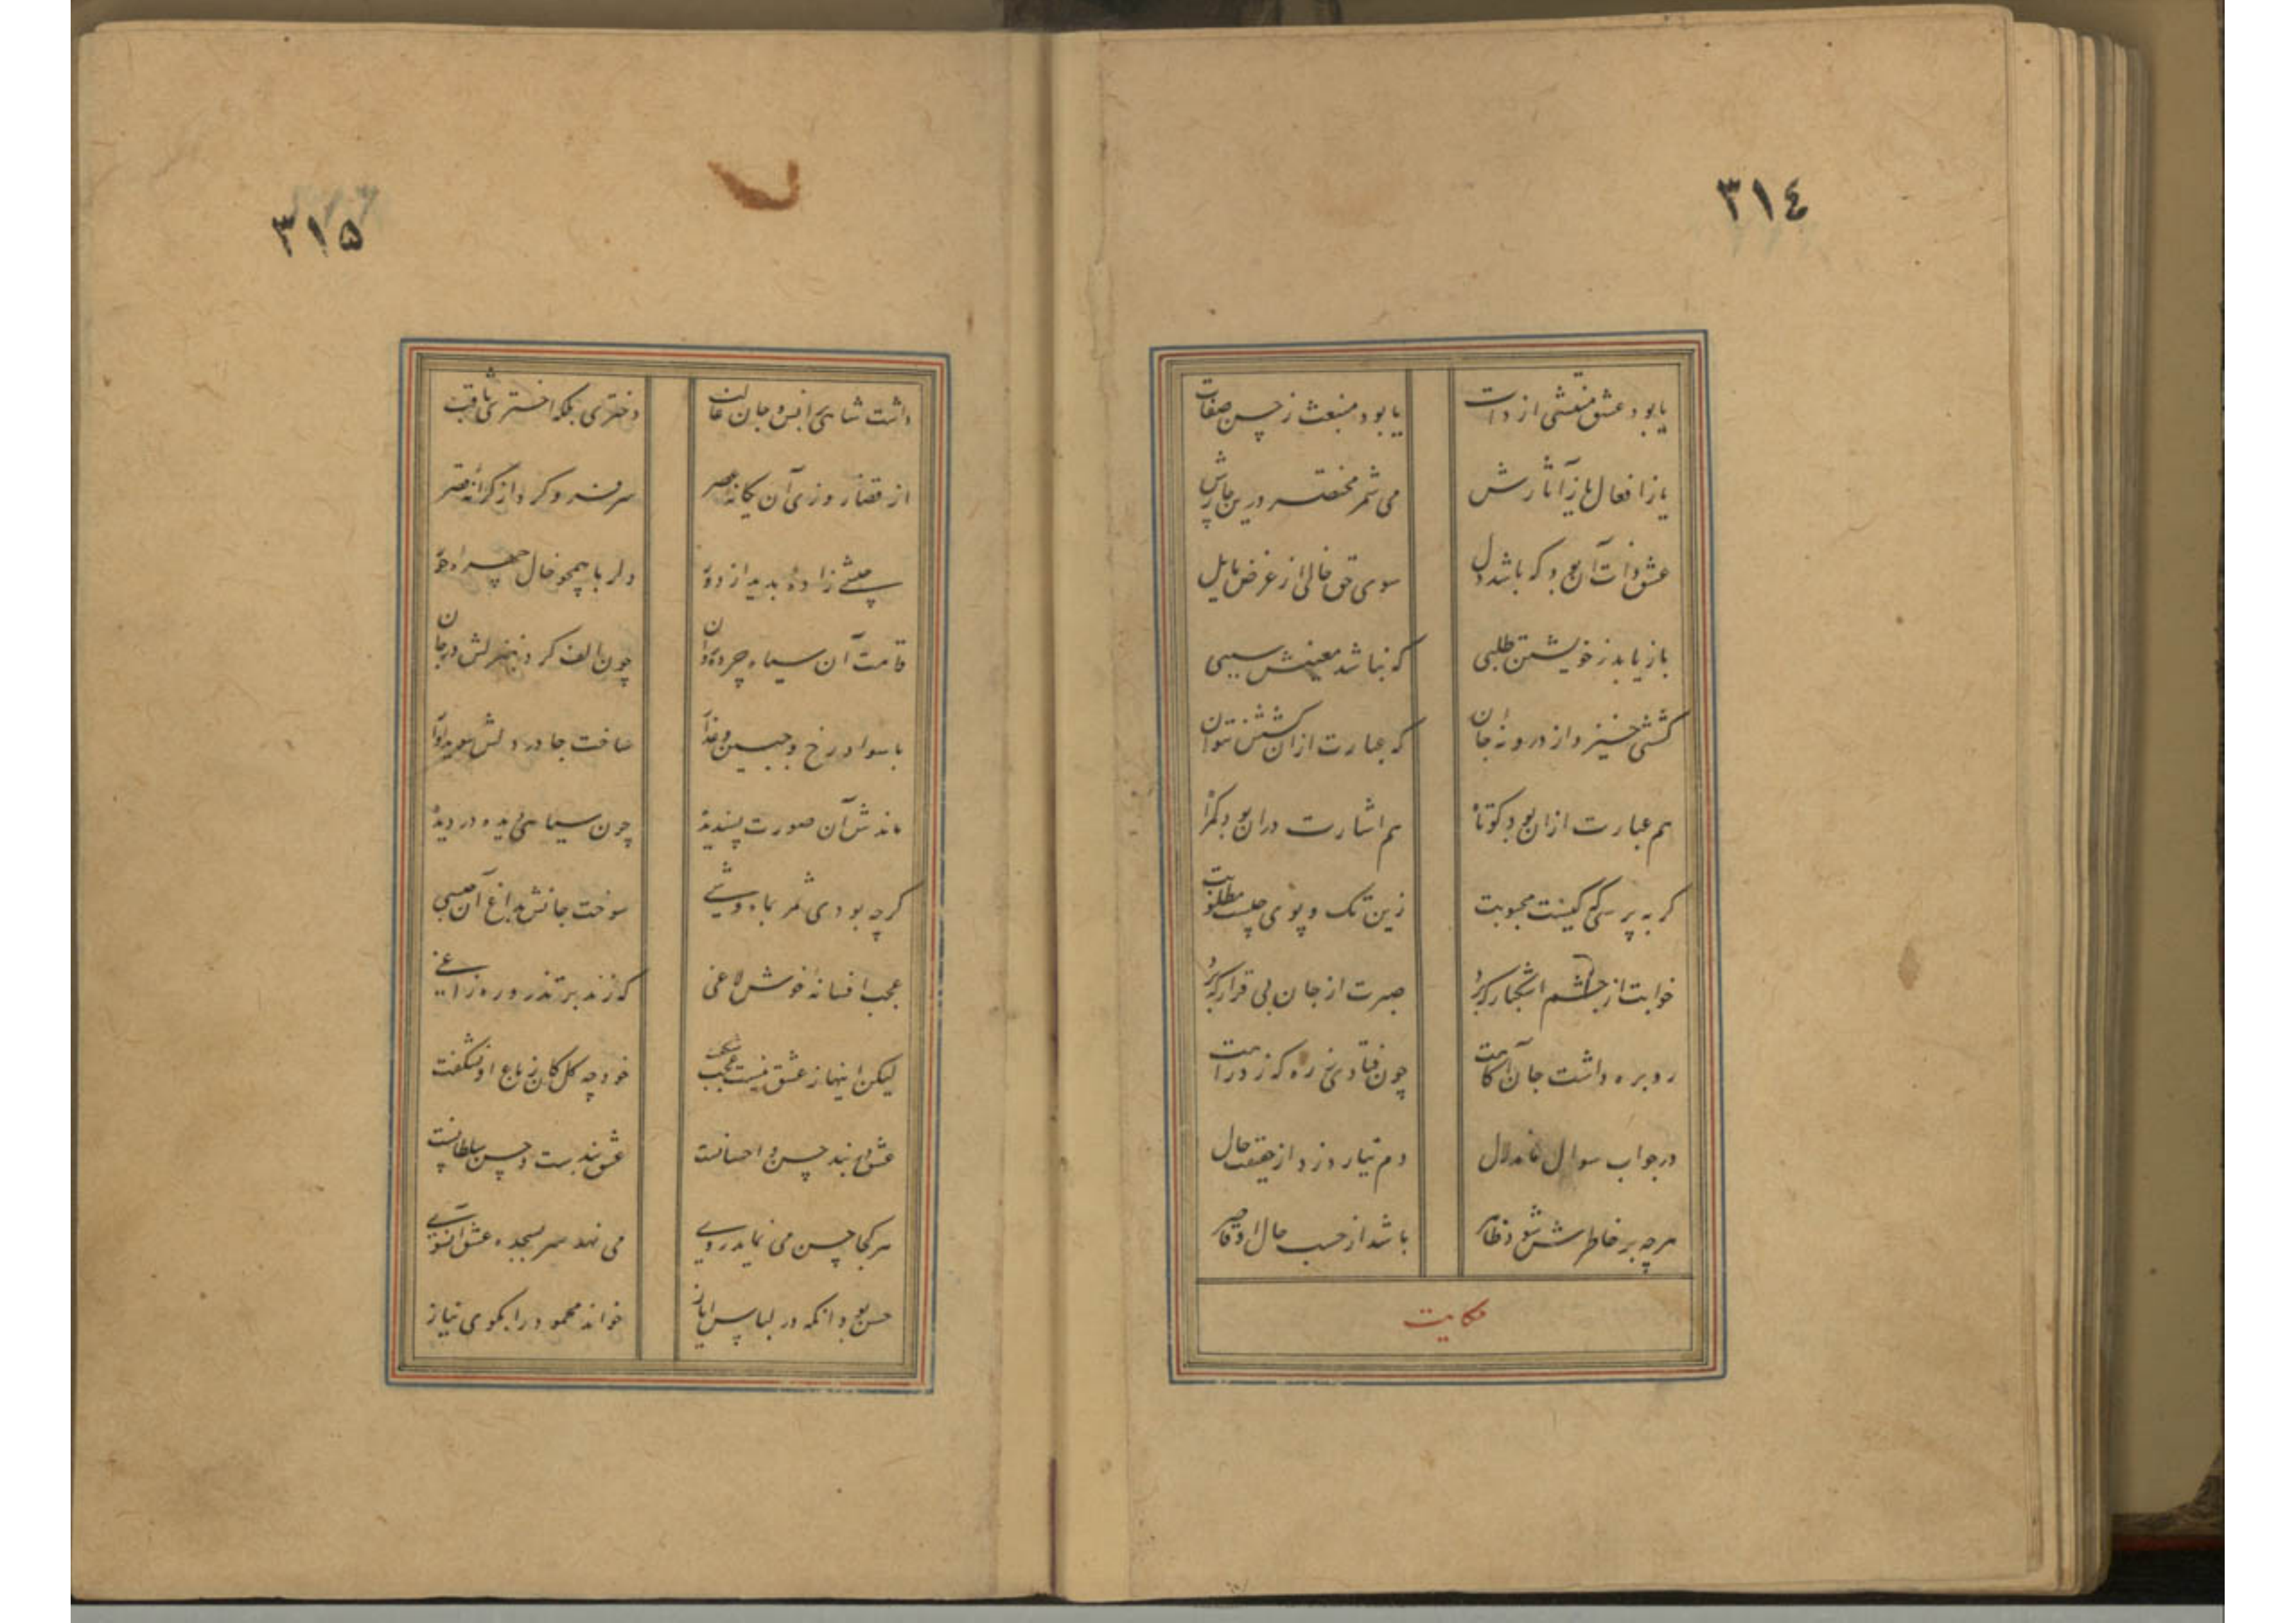 ٣١٤
یا بود عشق منتشی از ذات
یا بود منبعث ز حسن صفات
یا ز افعال یا ز آثارش
می شمر منحصر درین چارش
عشق ذات آن بود که باشد دل
سوی حق خالی از غرض مایل
باز یابد ز خویشتن طلبی
که نباشد معینش سببی
کششی خیزد از درونه جان
که عبارت ازان کشش نتوان
هم عبارت ازان بود کوتاه
هم اشارت دران بود گمراه
گر بپرسی که کیست محبوبت
زین تک و پوی چیست مطلوبت
خوابت از چشم اشکبار که برد
صبرت از جان بی قرار که برد
رو بره داشت جان آگاهت
چون فتادی ز ره که زد راهت
در جواب سوال ماند لال
دم نیارد زد از حقیقت حال
هرچه بر خاطرش شود ظاهر
باشد از حسب حال او قاصر
حکایت
٣١۵
داشت شاهی انس و جان طالب
دختری بلکه اختری ثاقب
از قضا روزی آن یگانه عصر
سر فرو کرد از کرانه قصر
حبشی زاده بدید از دور
دلربا همچو خال چهره حور
قامت آن سیاه چرده جوان
چون الف کرد منزلش در جان
با سواد رخ و جبین و عذار
ساخت جا در دلش سویداوار
ماندش آن صورت پسندیده
چون سیاهی دیده در دیده
گرچه بودی ثمر بماه وشی
سوخت جانش بداغ آن حبشی
عجب افسانه خوش لاغی
که زند بر تذرو ره زاغی
لیکن اینها ز عشق نیست عجب
خود چه گل کان ز باغ او نشکفت
عشق را بند حسن و احسانست
عشق بندست و حسن سلطانست
هر کجا حسن می نماید روی
می نهد سر بسجده عشق آنسوی
حسن بود آنکه در لباس ایاز
خواند محمود را بکوی نیاز